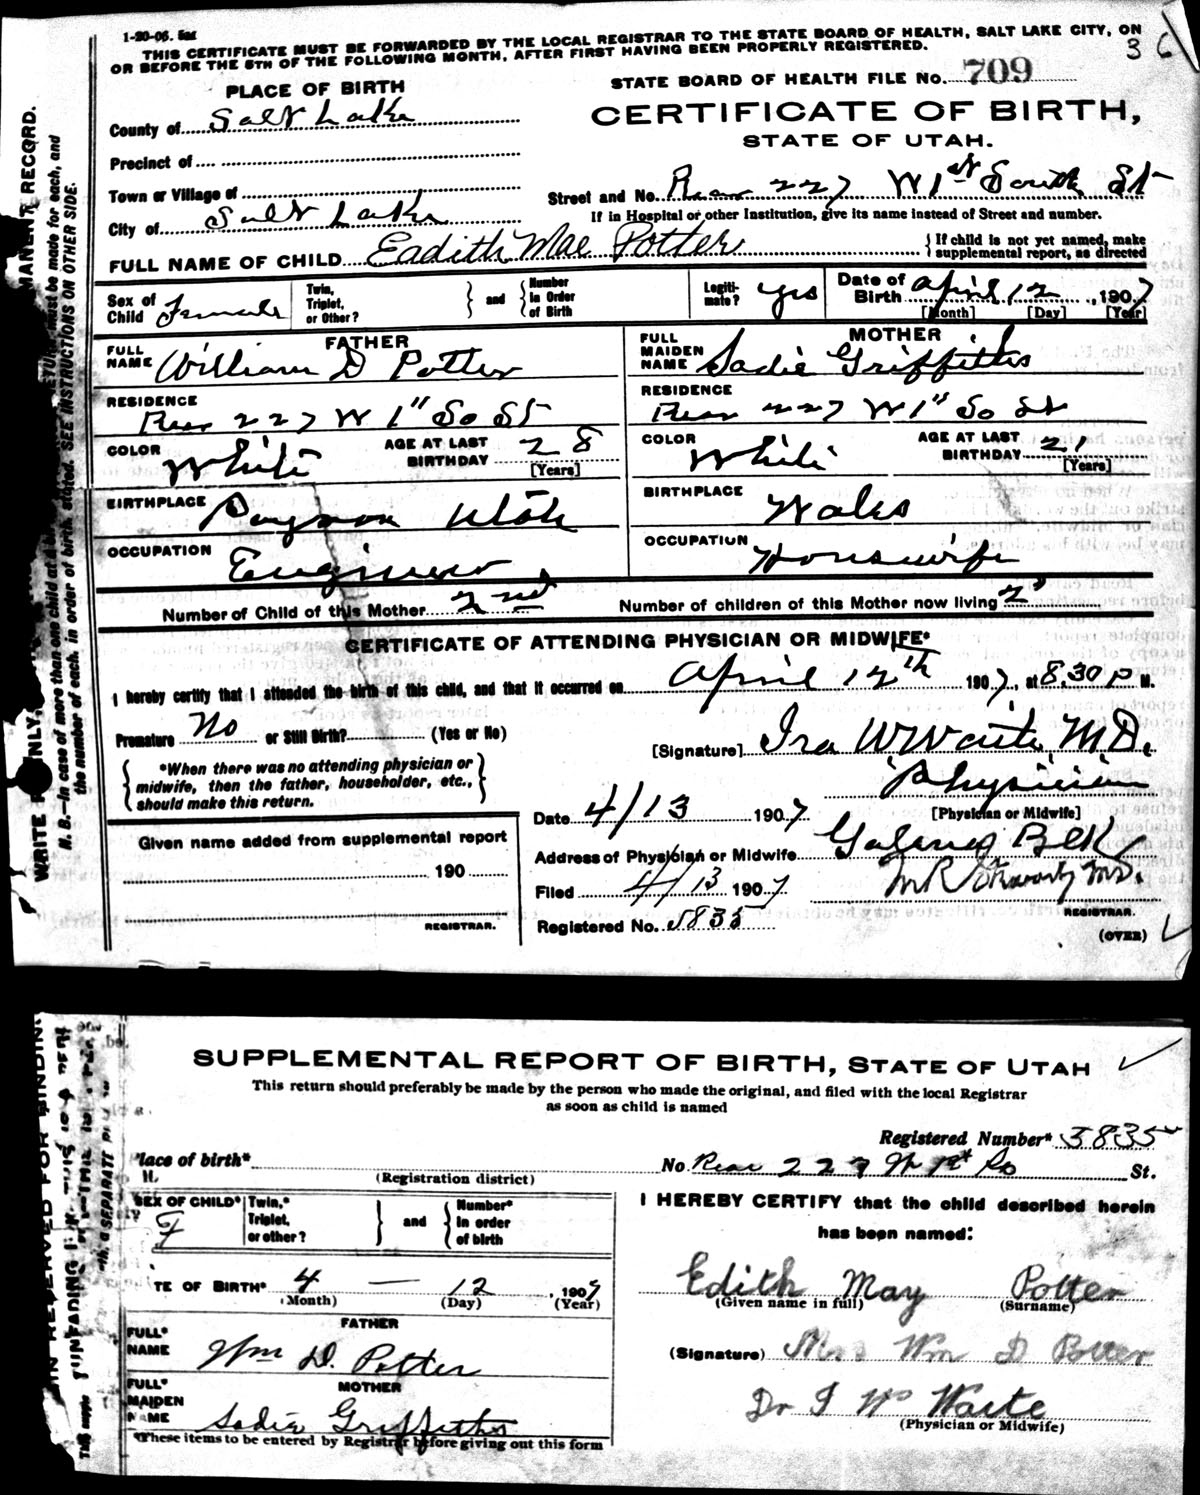 1-20-06. 5m
THIS CERTIFICATE MUST BE FORWARDED BY THE LOCAL REGISTRAR TO THE STATE BOARD OF HEALTH, SALT LAKE CITY, ON
OR BEFORE THE 5TH OF THE FOLLOWING MONTH, AFTER FIRST HAVING BEEN PROPERLY REGISTERED.
36
PLACE OF BIRTH
STATE BOARD OF HEALTH FILE NO. 709
County of Salt Lake
CERTIFICATE OF BIRTH,
STATE OF UTAH.
Precinct of
Town or Village of
Street and No. Rear 227 W 1st South St
City of Salt Lake
If in Hospital or other Institution, give its name instead of Street and number.
FULL NAME OF CHILD Eadith Mae Potter
{If child is not yet named, make supplemental report, as directed
Sex of Child Female
Twin, Triplet, or Other? } and { Number in Order of Birth
Legitimate? yes
Date of Birth April 12, 1907
[Month] [Day] [Year]
FATHER
FULL NAME William D Potter
MOTHER
FULL MAIDEN NAME Sadie Griffiths
RESIDENCE Rear 227 W 1" So St
RESIDENCE Rear 227 W 1" So St
COLOR White AGE AT LAST BIRTHDAY 28 [Years]
COLOR White AGE AT LAST BIRTHDAY 21 [Years]
BIRTHPLACE Payson Utah
BIRTHPLACE Wales
OCCUPATION Engineer
OCCUPATION Housewife
Number of Child of this Mother 2nd Number of children of this Mother now living 2
CERTIFICATE OF ATTENDING PHYSICIAN OR MIDWIFE*
I hereby certify that I attended the birth of this child, and that it occurred on April 12th 1907, at 8,30 P M.
Premature No or Still Birth? (Yes or No)
[Signature] Ira W Waite M.D.
{ *When there was no attending physician or midwife, then the father, householder, etc., should make this return. }
Physician
[Physician or Midwife]
Date 4/13 1907
Given name added from supplemental report
190
REGISTRAR.
Address of Physician or Midwife
Filed 4/13 1907
M.D.
REGISTRAR.
Registered No. 3835
(OVER)
MANENT RECORD.
N. B.—In case of more than one child at a
must be made for each, and
the number of each, in order of birth, stated. SEE INSTRUCTIONS ON OTHER SIDE.
SUPPLEMENTAL REPORT OF BIRTH, STATE OF UTAH
This return should preferably be made by the person who made the original, and filed with the local Registrar
as soon as child is named
Registered Number* 3835
lace of birth*
(Registration district)
No. Rear 227 W 1st So St.
SEX OF CHILD* F
Twin,* Triplet, or other? } and { Number* in order of birth
I HEREBY CERTIFY that the child described herein
has been named:
TE OF BIRTH* 4 — 12, 1907
(Month) (Day) (Year)
Edith May Potter
(Given name in full) (Surname)
FATHER
FULL* NAME Wm D. Potter
(Signature) Mrs Wm D Potter
MOTHER
FULL* MAIDEN NAME Sadie Griffiths
Dr I W Waite
(Physician or Midwife)
*These items to be entered by Registrar before giving out this form